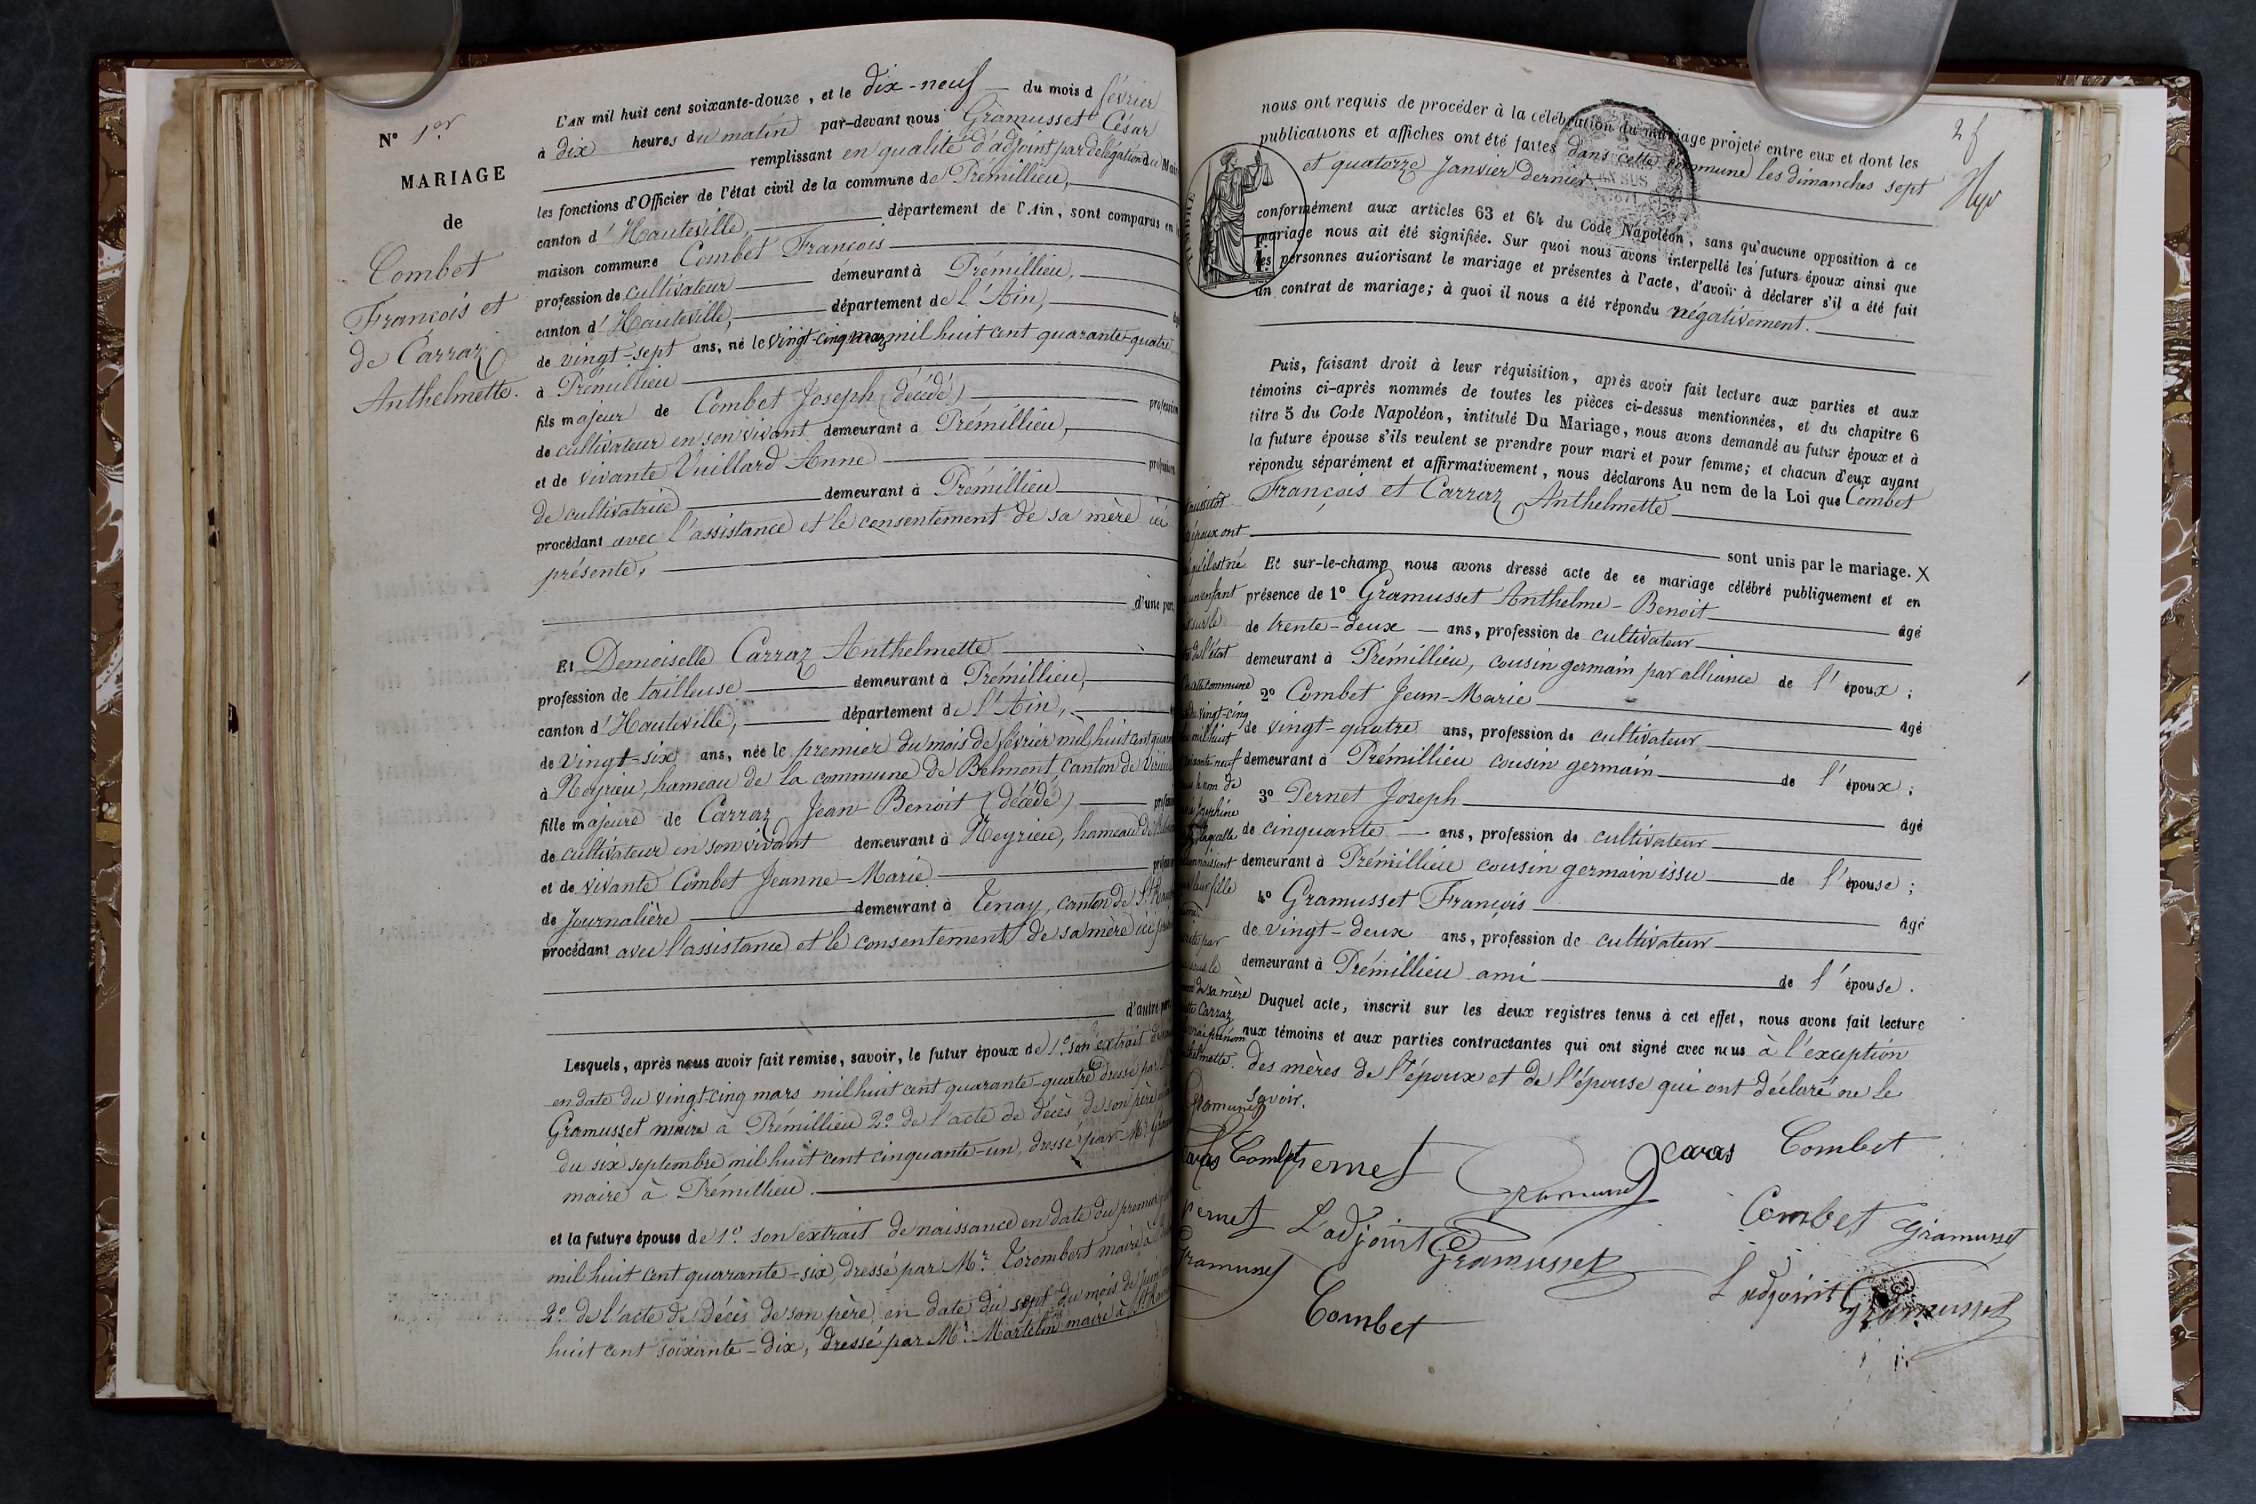 N° 1er
MARIAGE
de
Combet
François et
de Carraz
Anthelmette.
L'AN mil huit cent soixante-douze, et le dix-neuf du mois d février
à dix heures du matin par-devant nous Gramusset César
remplissant en qualité d'adjoint par délégation du Mai
les fonctions d'Officier de l'état civil de la commune de Prémillieu,
canton d'Hauteville, département de l'Ain, sont comparus en
maison commune Combet François
profession de cultivateur demeurant à Prémillieu,
canton d'Hauteville, département de l'Ain,
de vingt-sept ans, né le vingt-cinq mars mil huit cent quarante-quatre
à Prémillieu
fils majeur de Combet Joseph (décédé) profession
de cultivateur en son vivant demeurant à Prémillieu,
et de vivante Vuillard Anne profession
de cultivatrice demeurant à Prémillieu
procédant avec l'assistance et le consentement de sa mère ici
présente,
d'une part,
Et Demoiselle Carraz Anthelmette
profession de tailleuse demeurant à Prémillieu,
canton d'Hauteville, département de l'Ain,
de vingt-six ans, née le premier du mois de février mil huit cent quaran
à Neyrieu, hameau de la commune de Belmont, canton de Virieu
fille majeure de Carraz Jean-Benoit (décédé)
de cultivateur en son vivant demeurant à Neyrieu, hameau de
et de vivante Combet Jeanne-Marie
de Journalière demeurant à Tenay, canton de St
procédant avec l'assistance et le consentement de sa mère ici
d'autre part
Lesquels, après nous avoir fait remise, savoir, le futur époux de 1° son extrait
en date du vingt-cinq mars mil huit cent quarante-quatre dressé par
Gramusset maire à Prémillieu 2° de l'acte de décès de son père
du six septembre mil huit cent cinquante-un, dressé par Mr
maire à Prémillieu.
et la future épouse de 1° son extrait de naissance en date du premier
mil huit cent quarante-six, dressé par Mr. Torombert maire à
2° de l'acte de décès de son père en date du sept du mois de Juin
huit cent soixante-dix, dressé par Mr. Martelin maire à St
2 f
nous ont requis de procéder à la célébration du mariage projeté entre eux et dont les
publications et affiches ont été faites dans cette commune les dimanches sept
et quatorze Janvier dernier
conformément aux articles 63 et 64 du Code Napoléon, sans qu'aucune opposition à ce
mariage nous ait été signifiée. Sur quoi nous avons interpellé les futurs époux ainsi que
les personnes autorisant le mariage et présentes à l'acte, d'avoir à déclarer s'il a été fait
un contrat de mariage; à quoi il nous a été répondu négativement.
Puis, faisant droit à leur réquisition, après avoir fait lecture aux parties et aux
témoins ci-après nommés de toutes les pièces ci-dessus mentionnées, et du chapitre 6
titre 5 du Code Napoléon, intitulé Du Mariage, nous avons demandé au futur époux et à
la future épouse s'ils veulent se prendre pour mari et pour femme; et chacun d'eux ayant
répondu séparément et affirmativement, nous déclarons Au nom de la Loi que Combet
François et Carraz Anthelmette
sont unis par le mariage. X
Et sur-le-champ nous avons dressé acte de ce mariage célébré publiquement et en
présence de 1° Gramusset Anthelme-Benoit âgé
de trente-deux ans, profession de cultivateur
demeurant à Prémillieu, cousin germain par alliance de l'époux;
2° Combet Jean-Marie âgé
de vingt-quatre ans, profession de cultivateur
demeurant à Prémillieu cousin germain de l'époux;
3° Pernet Joseph âgé
de cinquante ans, profession de cultivateur
demeurant à Prémillieu cousin germain issu de l'épouse;
4° Gramusset François âgé
de vingt-deux ans, profession de cultivateur
demeurant à Prémillieu ami de l'épouse.
Duquel acte, inscrit sur les deux registres tenus à cet effet, nous avons fait lecture
aux témoins et aux parties contractantes qui ont signé avec nous à l'exception
des mères de l'époux et de l'épouse qui ont déclaré ne le
savoir.
aussitôt
époux ont
qu'il est né
un enfant
sur le
de l'état
commune
vingt-cinq
mil huit
neuf
nom de
Joséphine
laquelle
leur fille
par
de sa mère
Carraz
prénom
Combet pernet caras Combet
pernet L'adjoint Gramusset Combet Gramusset
Combet L'adjoint Gramusset